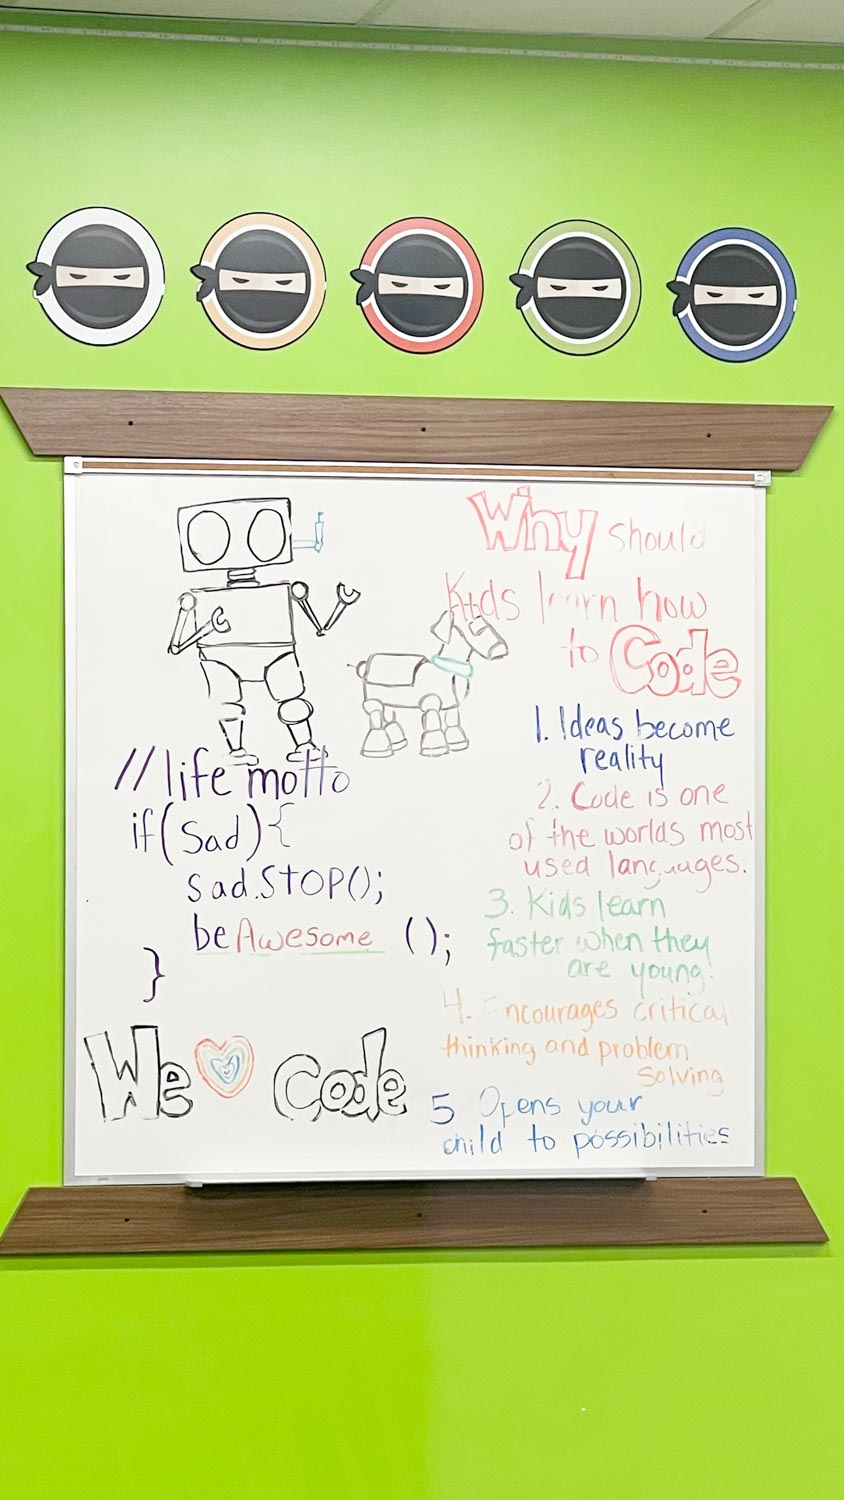 Why should
Kids learn how
to Code
1. Ideas become
reality
2. Code is one
of the worlds most
used languages.
3. Kids learn
faster when they
are young.
4. Encourages critical
thinking and problem
solving
5 Opens your
child to possibilities
//life motto
if(sad){
sad.STOP();
beAwesome ();
}
We Code